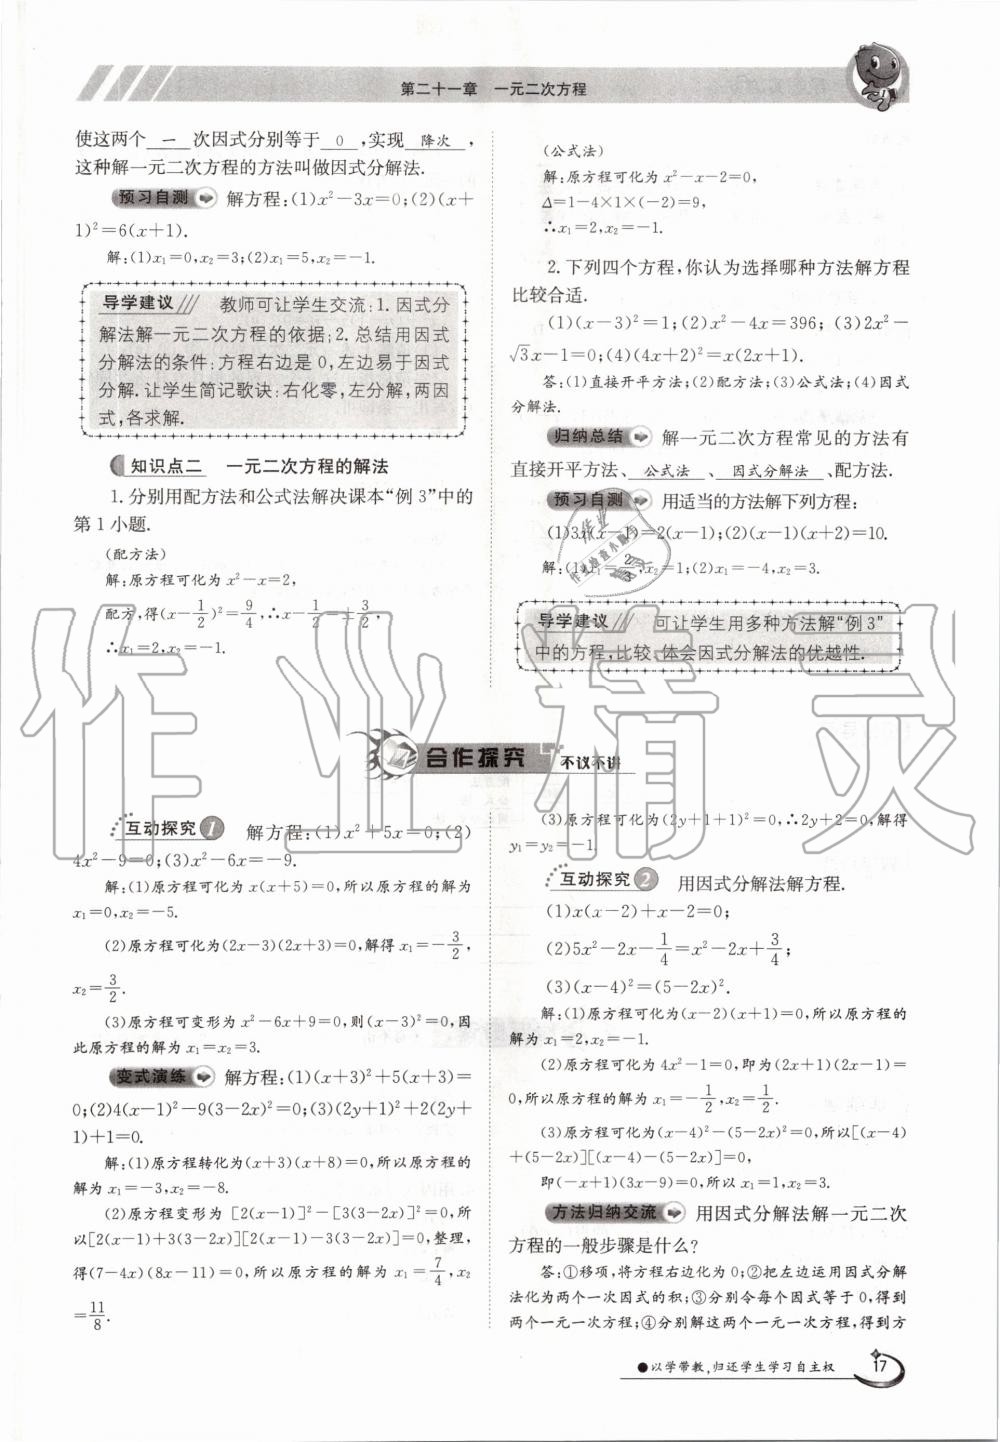 第二十一章　一元二次方程
使这两个 一 次因式分别等于 0 ,实现 降次 ,
这种解一元二次方程的方法叫做因式分解法.
预习自测 解方程:(1)x²－3x=0;(2)(x+
1)²=6(x+1).
解:(1)x₁=0,x₂=3;(2)x₁=5,x₂=－1.
导学建议 教师可让学生交流:1. 因式分
解法解一元二次方程的依据;2. 总结用因式
分解法的条件:方程右边是 0,左边易于因式
分解. 让学生简记歌诀:右化零,左分解,两因
式,各求解.
知识点二　一元二次方程的解法
1. 分别用配方法和公式法解决课本“例 3”中的
第 1 小题.
(配方法)
解:原方程可化为 x²－x=2,
配方,得(x－1/2)²=9/4,∴x－1/2=±3/2,
∴x₁=2,x₂=－1.
(公式法)
解:原方程可化为 x²－x－2=0,
Δ=1－4×1×(－2)=9,
∴x₁=2,x₂=－1.
2. 下列四个方程,你认为选择哪种方法解方程
比较合适.
(1)(x－3)²=1;(2)x²－4x=396; (3)2x²－
√3x－1=0;(4)(4x+2)²=x(2x+1).
答:(1)直接开平方法;(2)配方法;(3)公式法;(4)因式
分解法.
归纳总结 解一元二次方程常见的方法有
直接开平方法、 公式法 、 因式分解法 、配方法.
预习自测 用适当的方法解下列方程:
(1)3x(x－1)=2(x－1);(2)(x－1)(x+2)=10.
解:(1)x₁=2/3,x₂=1;(2)x₁=－4,x₂=3.
导学建议 可让学生用多种方法解“例 3”
中的方程,比较、体会因式分解法的优越性.
合作探究 不议不讲
互动探究 1 解方程:(1)x²+5x=0;(2)
4x²－9=0;(3)x²－6x=－9.
解:(1)原方程可化为 x(x+5)=0,所以原方程的解为
x₁=0,x₂=－5.
(2)原方程可化为(2x－3)(2x+3)=0,解得 x₁=－3/2,
x₂=3/2.
(3)原方程可变形为 x²－6x+9=0,则(x－3)²=0,因
此原方程的解为 x₁=x₂=3.
变式演练 解方程:(1)(x+3)²+5(x+3)=
0;(2)4(x－1)²－9(3－2x)²=0;(3)(2y+1)²+2(2y+
1)+1=0.
解:(1)原方程转化为(x+3)(x+8)=0,所以原方程的
解为 x₁=－3,x₂=－8.
(2)原方程变形为 [2(x－1)]²－[3(3－2x)]²=0,所
以[2(x－1)+3(3－2x)][2(x－1)－3(3－2x)]=0,整理,
得(7－4x)(8x－11)=0,所以原方程的解为 x₁=7/4,x₂
=11/8.
(3)原方程可化为(2y+1+1)²=0,∴2y+2=0,解得
y₁=y₂=－1.
互动探究 2 用因式分解法解方程.
(1)x(x－2)+x－2=0;
(2)5x²－2x－1/4=x²－2x+3/4;
(3)(x－4)²=(5－2x)².
解:(1)原方程可化为(x－2)(x+1)=0,所以原方程的
解为 x₁=2,x₂=－1.
(2)原方程可化为 4x²－1=0,即为(2x+1)(2x－1)=
0,所以原方程的解为 x₁=－1/2,x₂=1/2.
(3)原方程可化为(x－4)²－(5－2x)²=0,所以[(x－4)
+(5－2x)][(x－4)－(5－2x)]=0,
即(－x+1)(3x－9)=0,所以 x₁=1,x₂=3.
方法归纳交流 用因式分解法解一元二次
方程的一般步骤是什么?
答:①移项,将方程右边化为 0;②把左边运用因式分解
法化为两个一次因式的积;③分别令每个因式等于 0,得到
两个一元一次方程;④分别解这两个一元一次方程,得到方
●以学带教,归还学生学习自主权 17
作业精灵